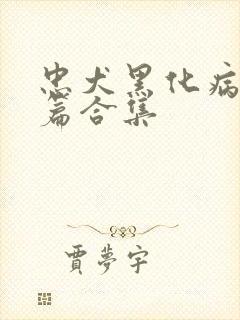 忠犬黑化病
篇合集
賈夢宇